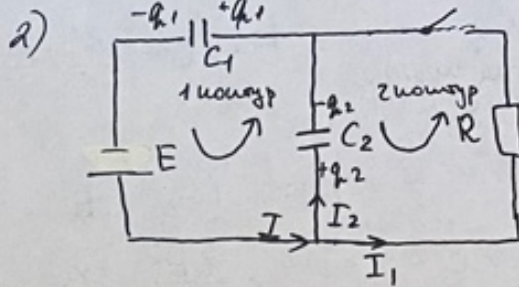 2)
-q₁ +q₁
C₁
1 контур
2 контур
-q₂
E
C₂
R
+q₂
I
I₂
I₁